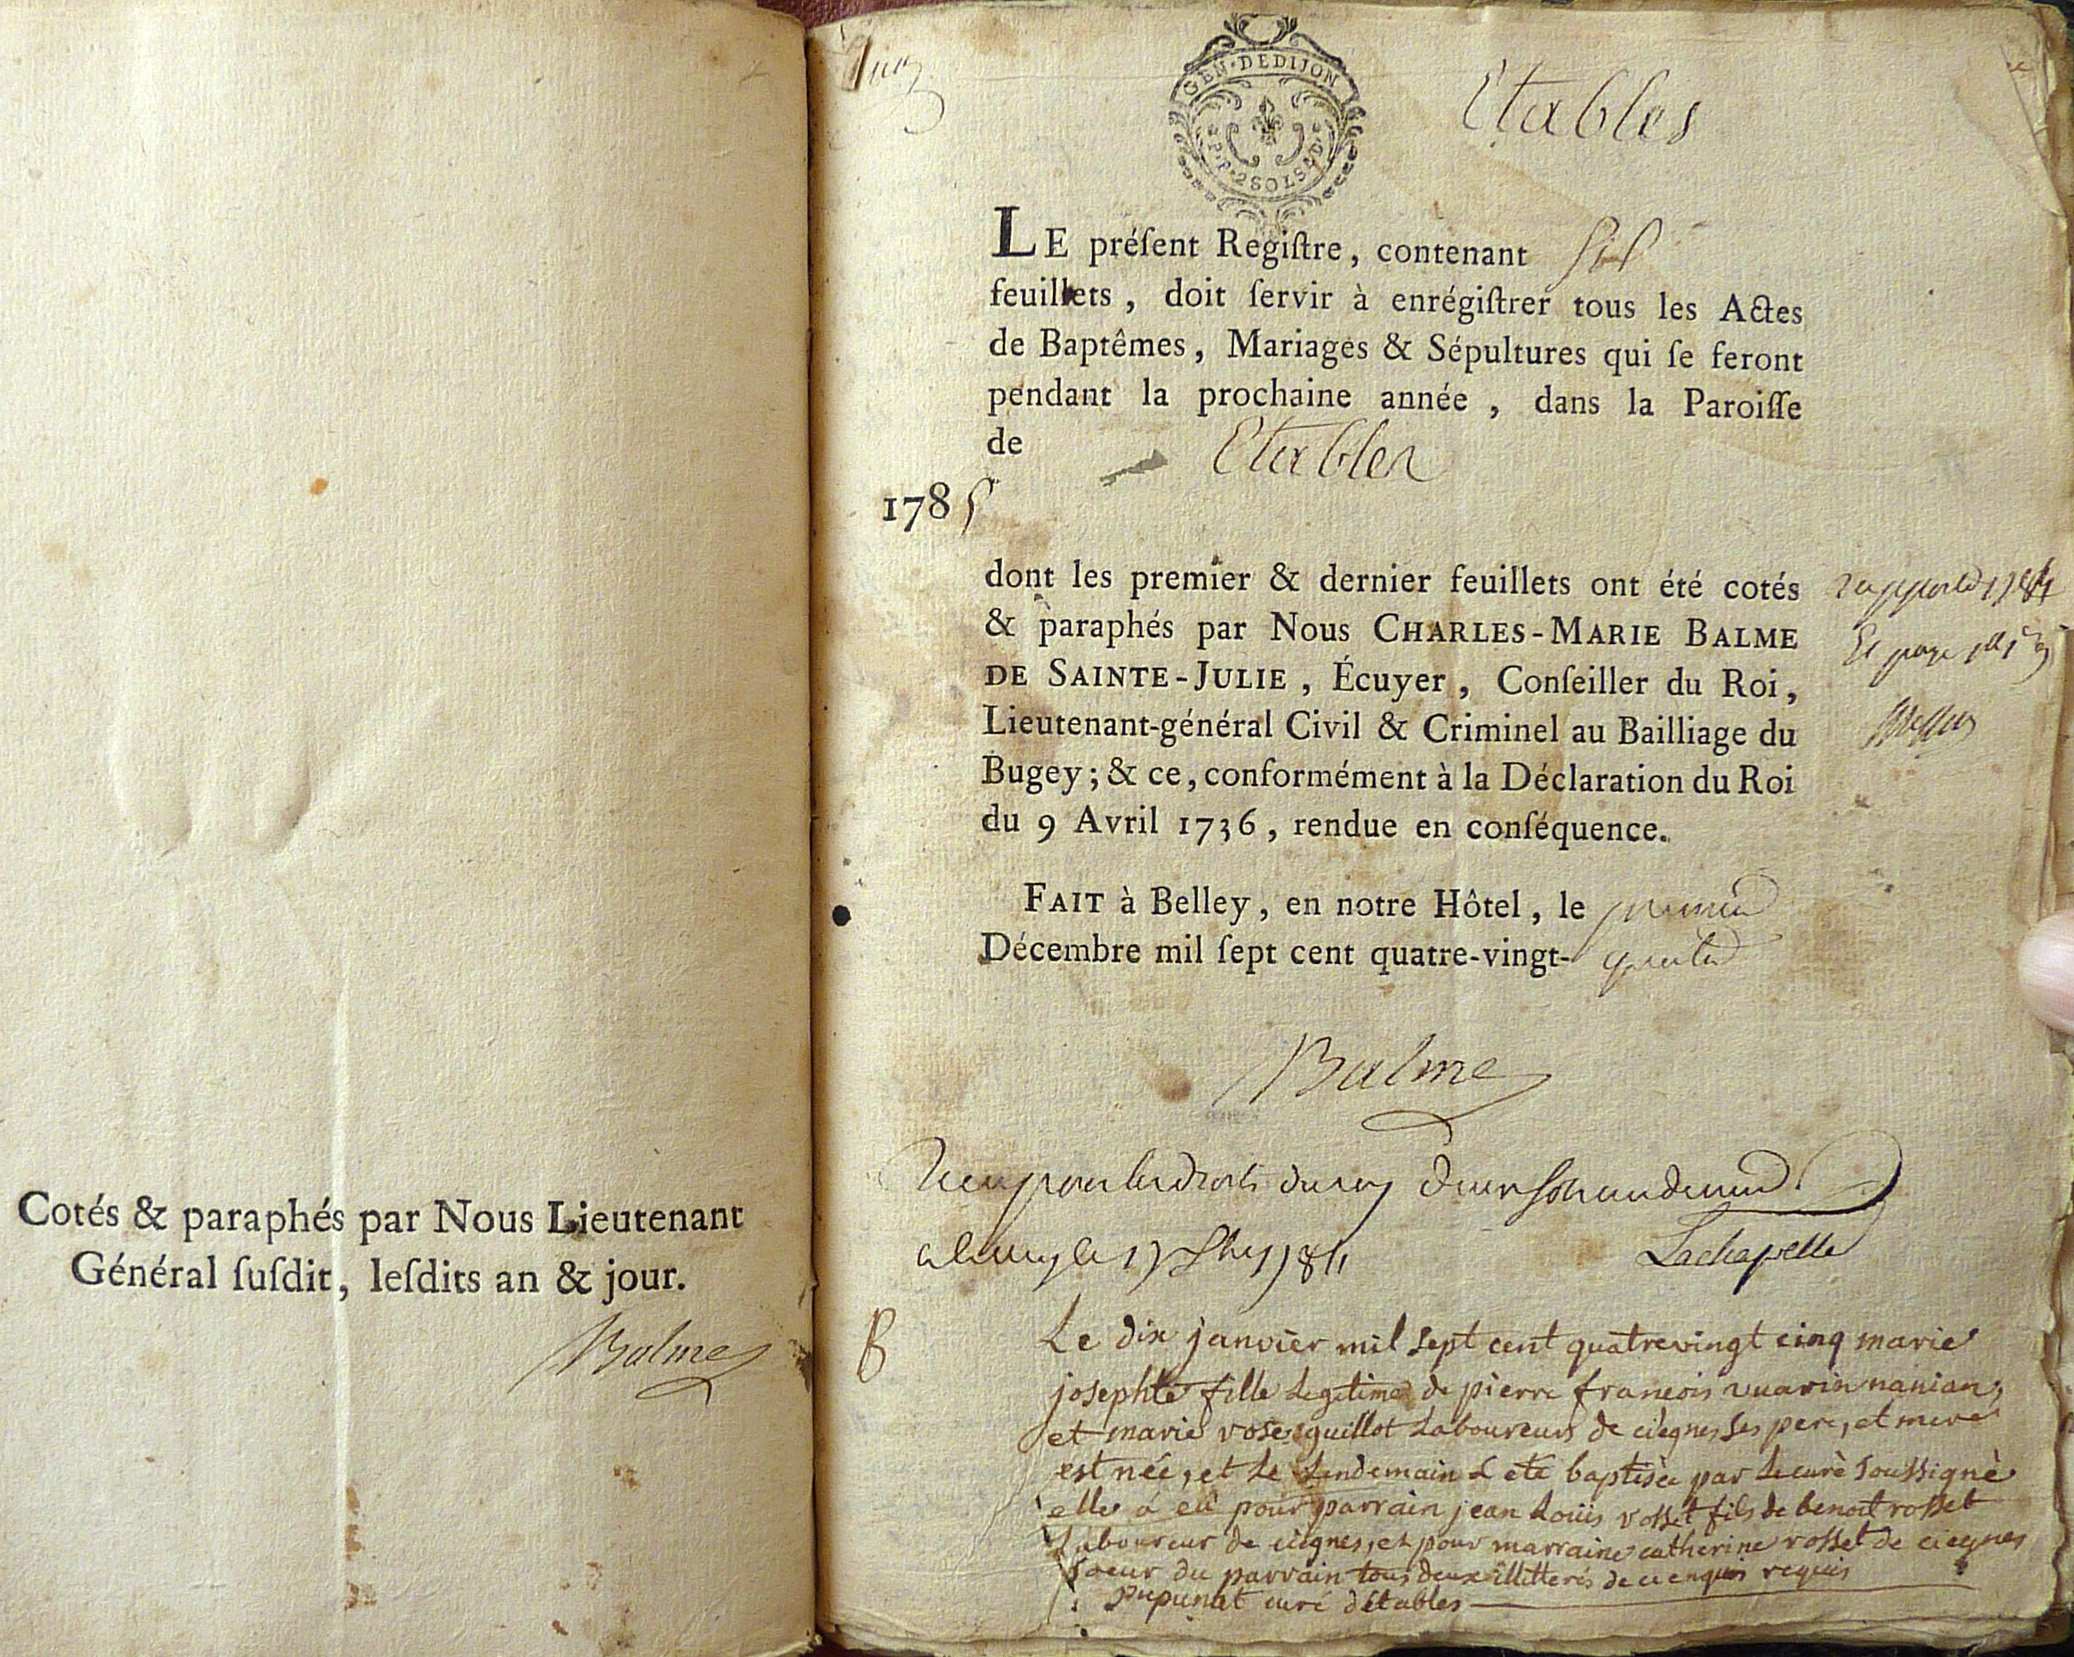 Cotés & paraphés par Nous Lieutenant
Général ſuſdit, leſdits an & jour.
Balme
GEN·DEDIJON
P·P·2SOLS·D·
Etables
LE préſent Regiſtre, contenant Six
feuillets, doit ſervir à enrégiſtrer tous les Actes
de Baptêmes, Mariages & Sépultures qui ſe feront
pendant la prochaine année, dans la Paroiſſe
de Etables
1785
dont les premier & dernier feuillets ont été cotés
& paraphés par Nous CHARLES-MARIE BALME
DE SAINTE-JULIE, Écuyer, Conſeiller du Roi,
Lieutenant-général Civil & Criminel au Bailliage du
Bugey; & ce, conformément à la Déclaration du Roi
du 9 Avril 1736, rendue en conſéquence.
FAIT à Belley, en notre Hôtel, le premier
Décembre mil ſept cent quatre-vingt-quatre
Balme
Lachapelle
B
Le dix janvier mil sept cent quatrevingt cinq marie
josephte fille Legitime de pierre francois vuarin nanian,
et marie rose guillot Laboureurs de ciègnes ses pere, et mere
est née, et Le Lendemain a eté baptisée par Le curè soussignè
elle a eu pour parrain jean Loüis rosset fils de benoit rosset
Laboureur de ciegnes, et pour marraine catherine rosset de ciegnes
soeur du parrain tous deux illitterés de ce enquis requis
Pupunat curé d'étables